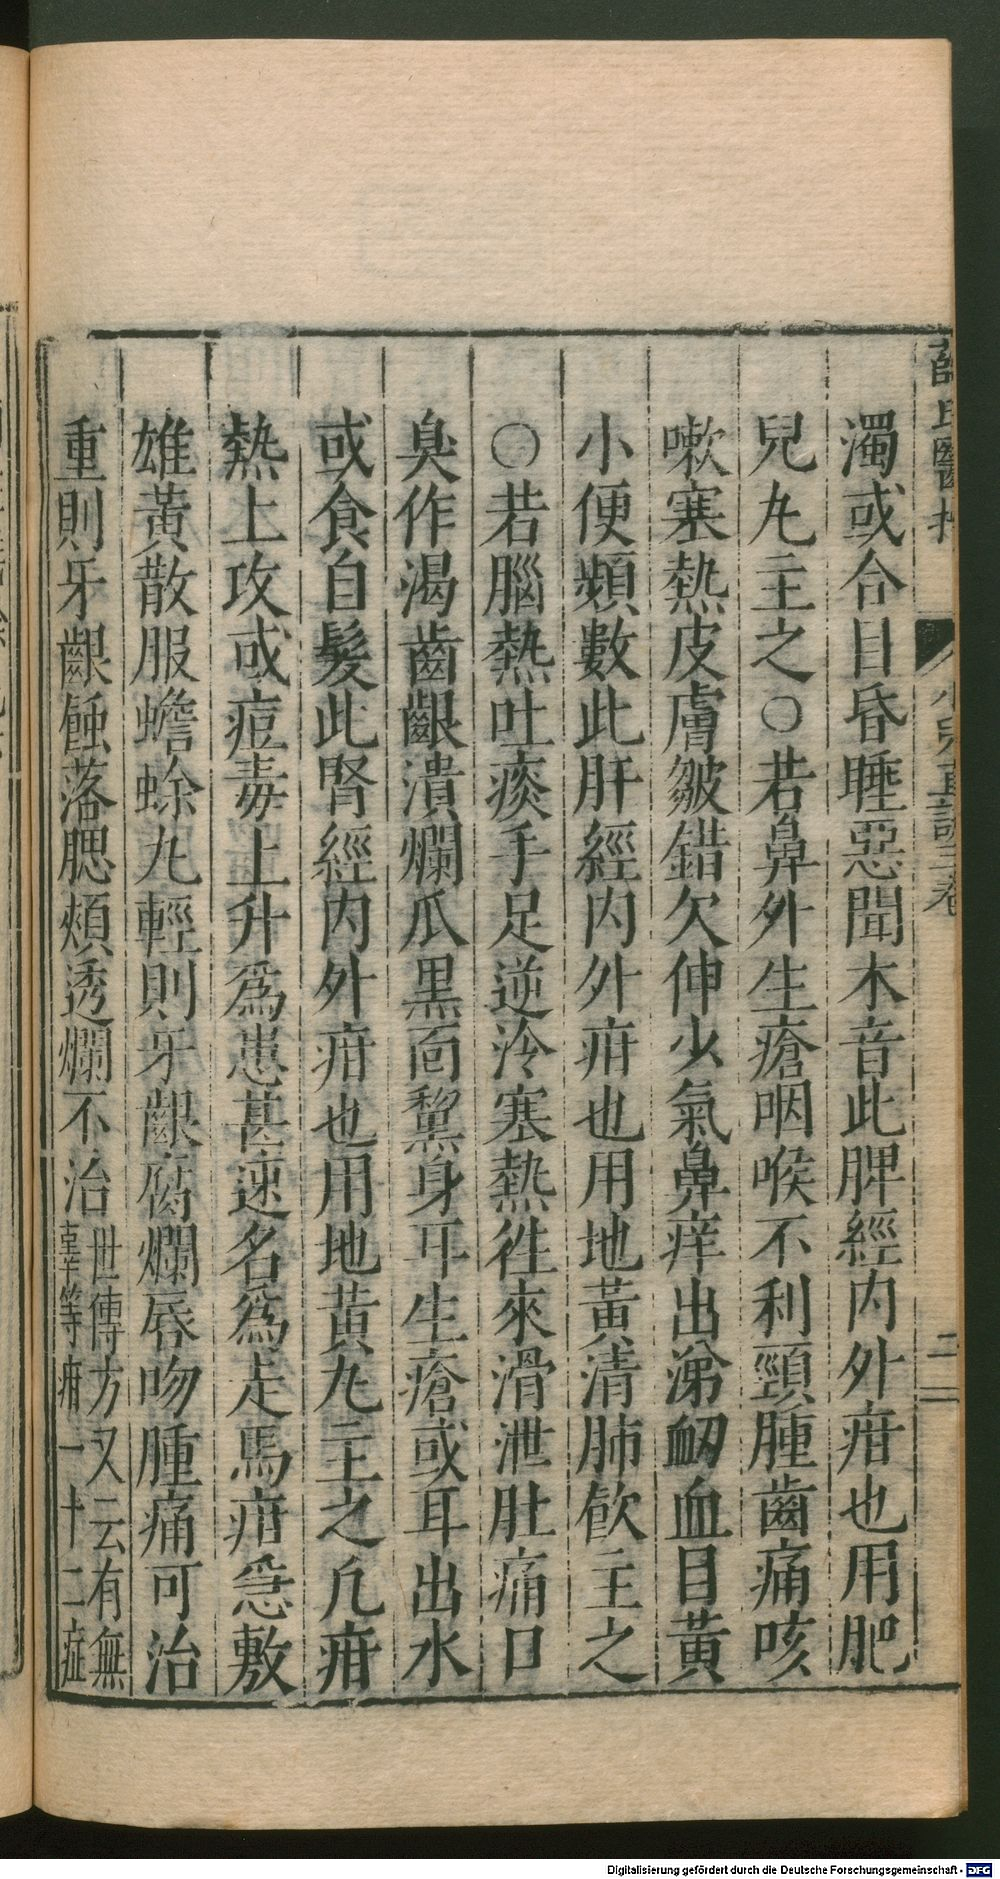 薛氏醫按 小兒直訣三卷 二
濁或合目昏睡惡聞木音此脾經内外疳也用肥
兒丸主之○若鼻外生瘡咽喉不利頸腫齒痛咳
嗽寒熱皮膚皴錯欠伸少氣鼻痒出涕衂血目黃
小便頻數此肝經内外疳也用地黃清肺飲主之
○若腦熱吐痰手足逆冷寒熱徃來滑泄肚痛口
臭作渴齒齦潰爛爪黑面黧身耳生瘡或耳出水
或食自髮此腎經内外疳也用地黃丸主之凡疳
熱上攻或痘毒上升爲患甚速名爲走馬疳急敷
雄黃散服蟾蜍丸輕則牙齦腐爛唇吻腫痛可治
重則牙齦蝕落腮頰透爛不治世傳方又云有無
辜等疳一十二症
Digitalisierung gefördert durch die Deutsche Forschungsgemeinschaft - DFG